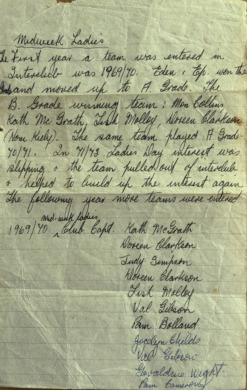 Midweek Ladies
The First year a team was entered in
Interclub was 1969/70. Eden + Ep. won the
and moved up to A Grade. The
B. Grade winning team: Mon Collins
Kath Mc Grath, Trish Molloy, Doreen Clarkson
(Mon Kiely). The same team played A Grade
70/71. In 71/73 Ladies Day interest was
slipping & the team pulled out of interclub
& helped to build up the interest again
The following year more teams were entered
mid-week ladies
1969/70 Club Capt. Kath McGrath
Doreen Clarkson
Judy Simpson
Doreen Clarkson
Trish Molloy
Val Gibson
Pam Bolland
Jocelyn Childs
Val Gibson
Geraldene Wight
Pam